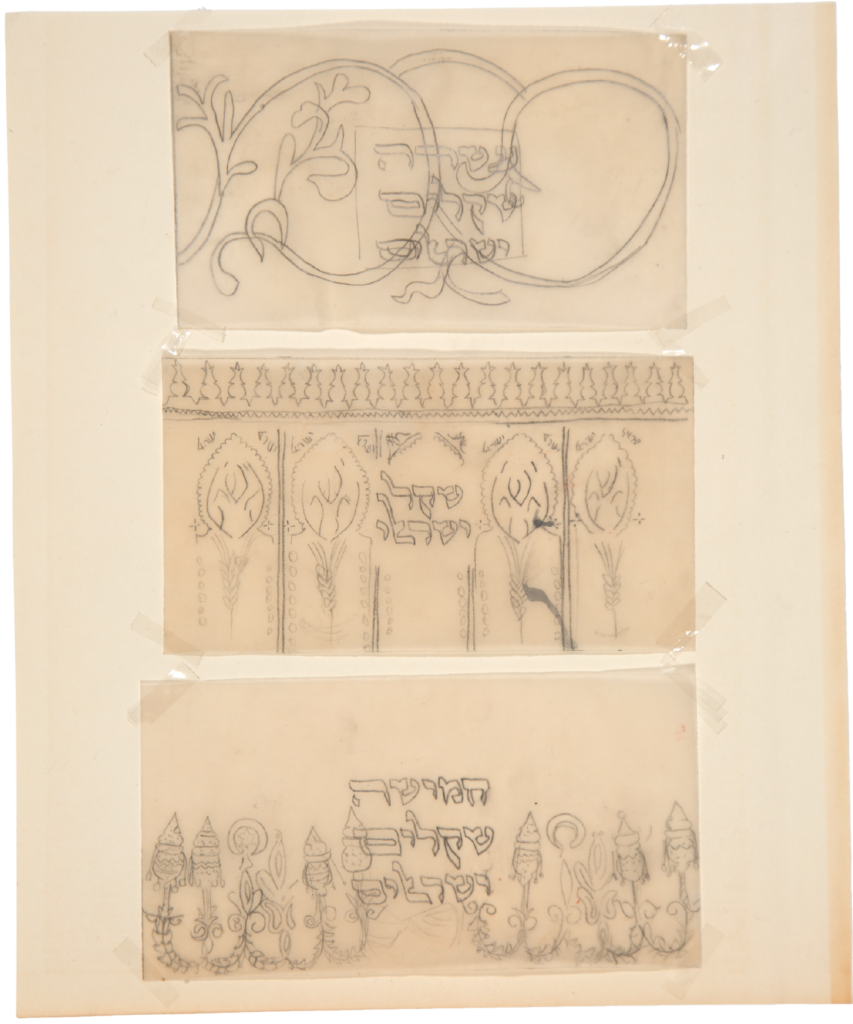 עשרה
שקלים
ישראלים
שקל
ישראלי
חמישה
שקלים
ישראלים